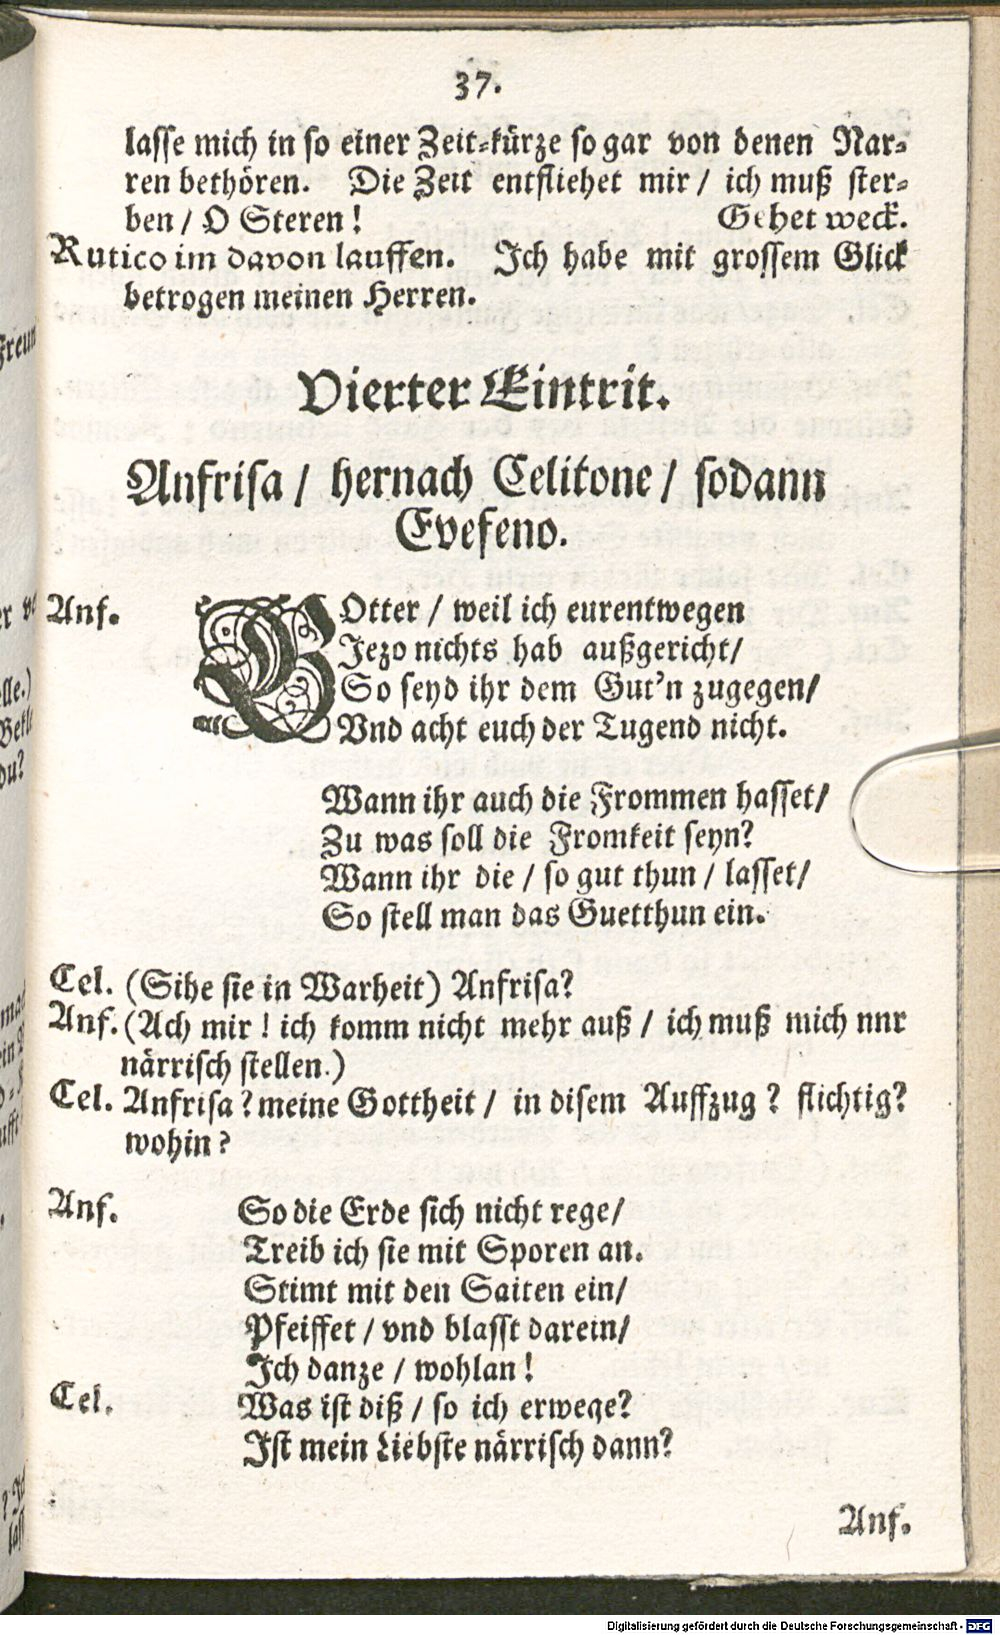 37.
lasse mich in so einer Zeit-kürze so gar von denen Nar-
ren bethören. Die Zeit entfliehet mir / ich muß ster-
ben / O Steren! Gehet weck.
Rutico im davon lauffen. Ich habe mit grossem Glick
betrogen meinen Herren.
Vierter Eintrit.
Anfrisa / hernach Celitone / sodann
Evefeno.
Anf. GOtter / weil ich eurentwegen
Jezo nichts hab außgericht/
So seyd ihr dem Gut'n zugegen/
Vnd acht euch der Tugend nicht.
Wann ihr auch die Frommen hasset/
Zu was soll die Fromkeit seyn?
Wann ihr die / so gut thun / lasset/
So stell man das Guetthun ein.
Cel. (Sihe sie in Warheit) Anfrisa?
Anf. (Ach mir! ich komm nicht mehr auß / ich muß mich nnr
närrisch stellen.)
Cel. Anfrisa? meine Gottheit / in disem Auffzug? flichtig?
wohin?
Anf. So die Erde sich nicht rege/
Treib ich sie mit Sporen an.
Stimt mit den Saiten ein/
Pfeiffet / vnd blasst darein/
Ich danze / wohlan!
Cel. Was ist diß / so ich erwege?
Ist mein Liebste närrisch dann?
Anf.
Digitalisierung gefördert durch die Deutsche Forschungsgemeinschaft - DFG